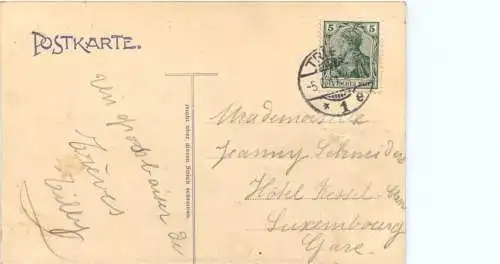 POSTKARTE.
5 5
TRIE
* 1 e
un gros baiser de
Trèves
Tilly
nicht über diesen Strich schreiben.
Mademoiselle
Jeanny Schneider
Hôtel Kessel
Luxembourg
Gare.